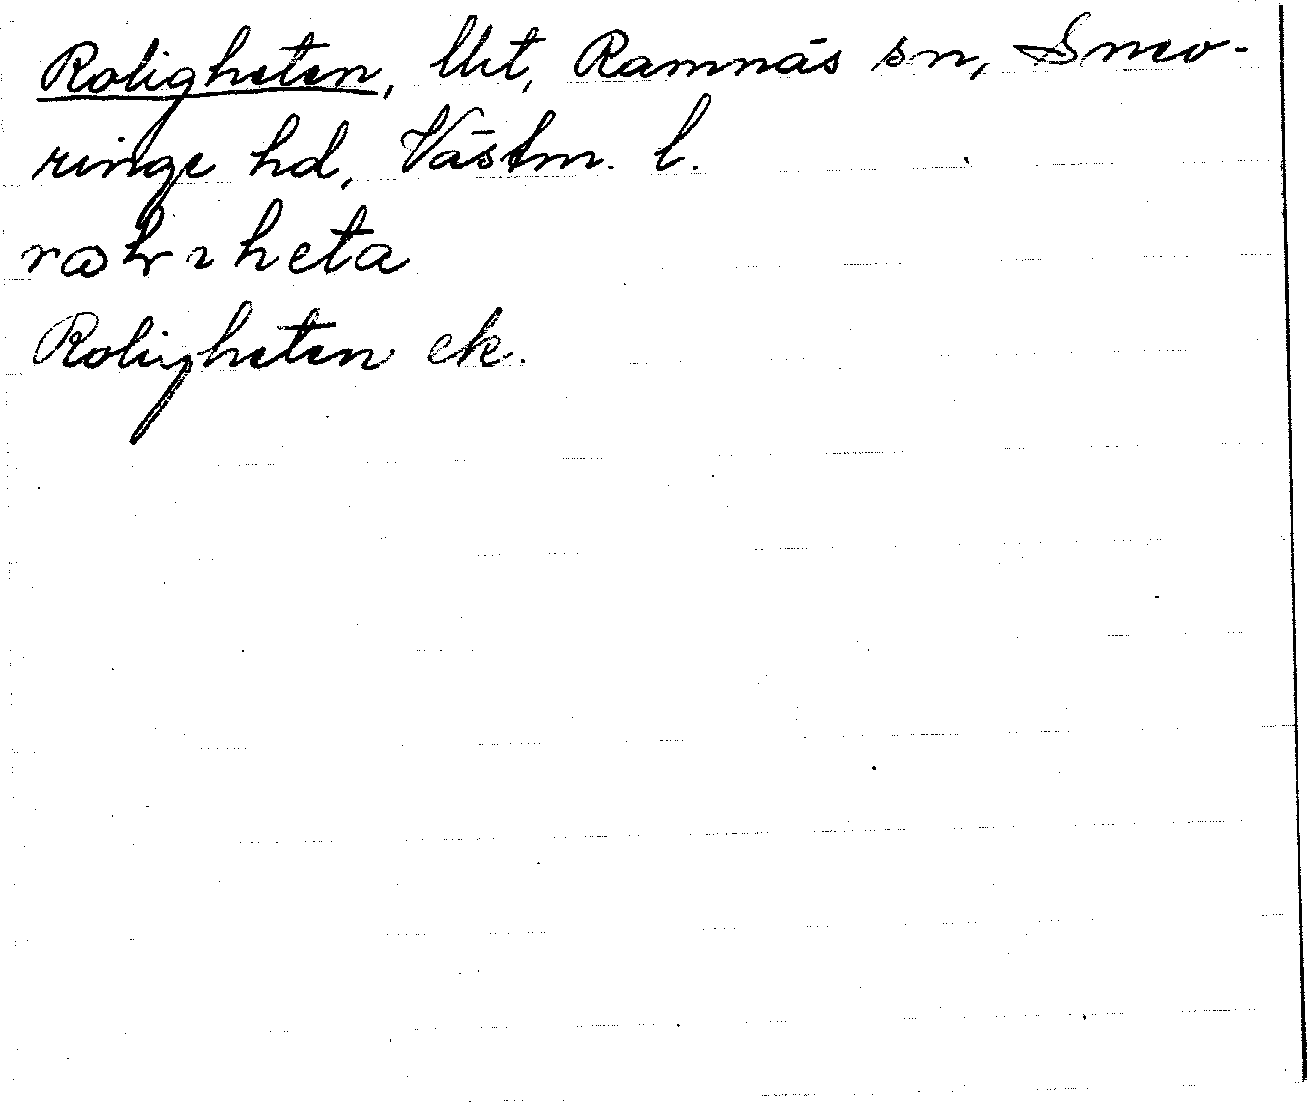 Roligheten, lht, Ramnäs sn, Snev-
ringe hd, Västm. l.
Roligheten ek.